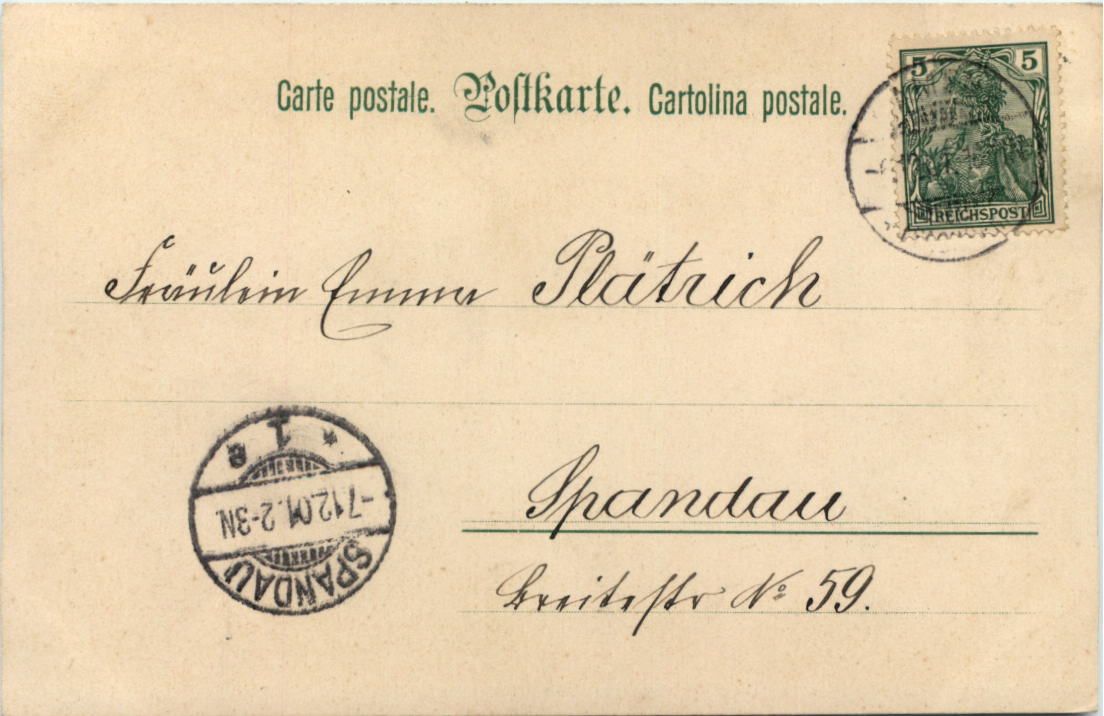 Carte postale. Postkarte. Cartolina postale.
5 5
REICHSPOST
Fräulein Emma Plätrich
* 1 a
-7.12.01. 2-3N.
SPANDAU
Spandau
Breitestr No 59.